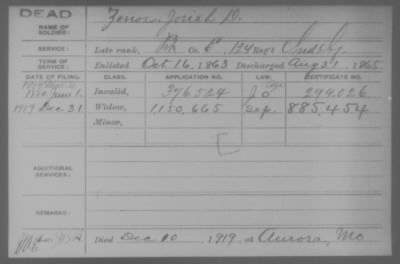 DEAD
NAME OF SOLDIER: Zenor, Josiah D.
SERVICE: Late rank, Co. E, 124 Reg't Ind. Inf.
TERM OF SERVICE: Enlisted Oct 16, 1863 Discharged Aug 31, 1865
DATE OF FILING. CLASS. APPLICATION NO. LAW. CERTIFICATE NO.
Invalid, 376.524 294.026
1919 Dec 31 Widow, 1,150,665 885,454
Minor,
ADDITIONAL SERVICES:
REMARKS:
Died Dec 10, 1919, at Aurora, Mo